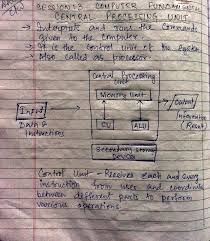 SESSION:3 COMPUTER FUNDAMENTAL
CENTRAL PROCESSING UNIT
→ Interprets and runs the commands
given to the computer.
→ It is the control unit of the system
→ Also called as processor.
Central Processing
Unit
Memory Unit
Input
Data &
Instructions
CU
ALU
Output
Information
(Result)
Secondary storage
Devices
Control Unit - Receives each and every
instruction from user and coordinate
between different parts to perform
various operations.